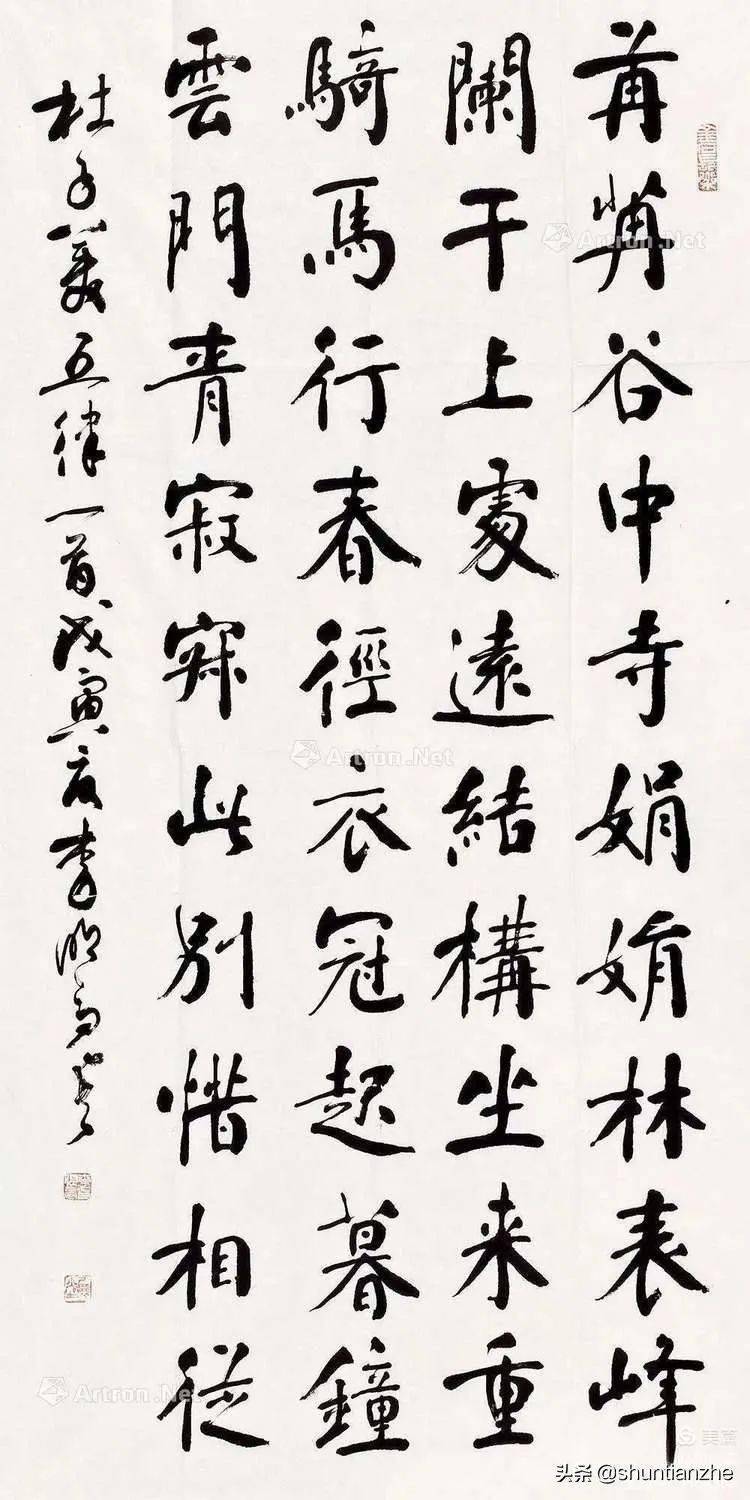 苒苒谷中寺娟娟林表峰
闌干上處遠結構坐来重
騎馬行春徑衣冠起暮鐘
雲門青寂寂此別惜相從
杜子美五律一首戊寅夏李
Artron.Net
Artron.Net
Artron.Net
美篇
头条 @shuntianzhe